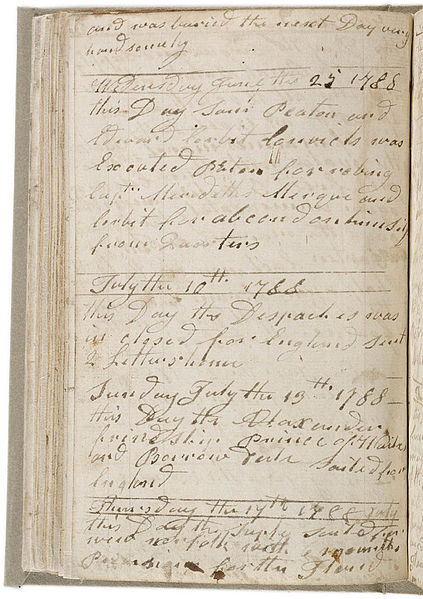 and was buried the next Day very
handsomely
Wednesday June the 25 1788
this Day Saml Peaton and
Edward Corbit Convicts was
Executed Peton for robing
Capt Meredeths Merque and
Corbit for abcondon himself
from Quarters
July the 10th 1788
this Day the Despaches was
closed for England sent
2 Letters home
Sunday July the 13th 1788
this Day the Alaxander
friendship Prince of Wails
and Borrow Sailed for
England
Thursday the 17th 1788 July
this Day the Suply Sailed for
Norfolk with 6 months
Provisions for the Iland